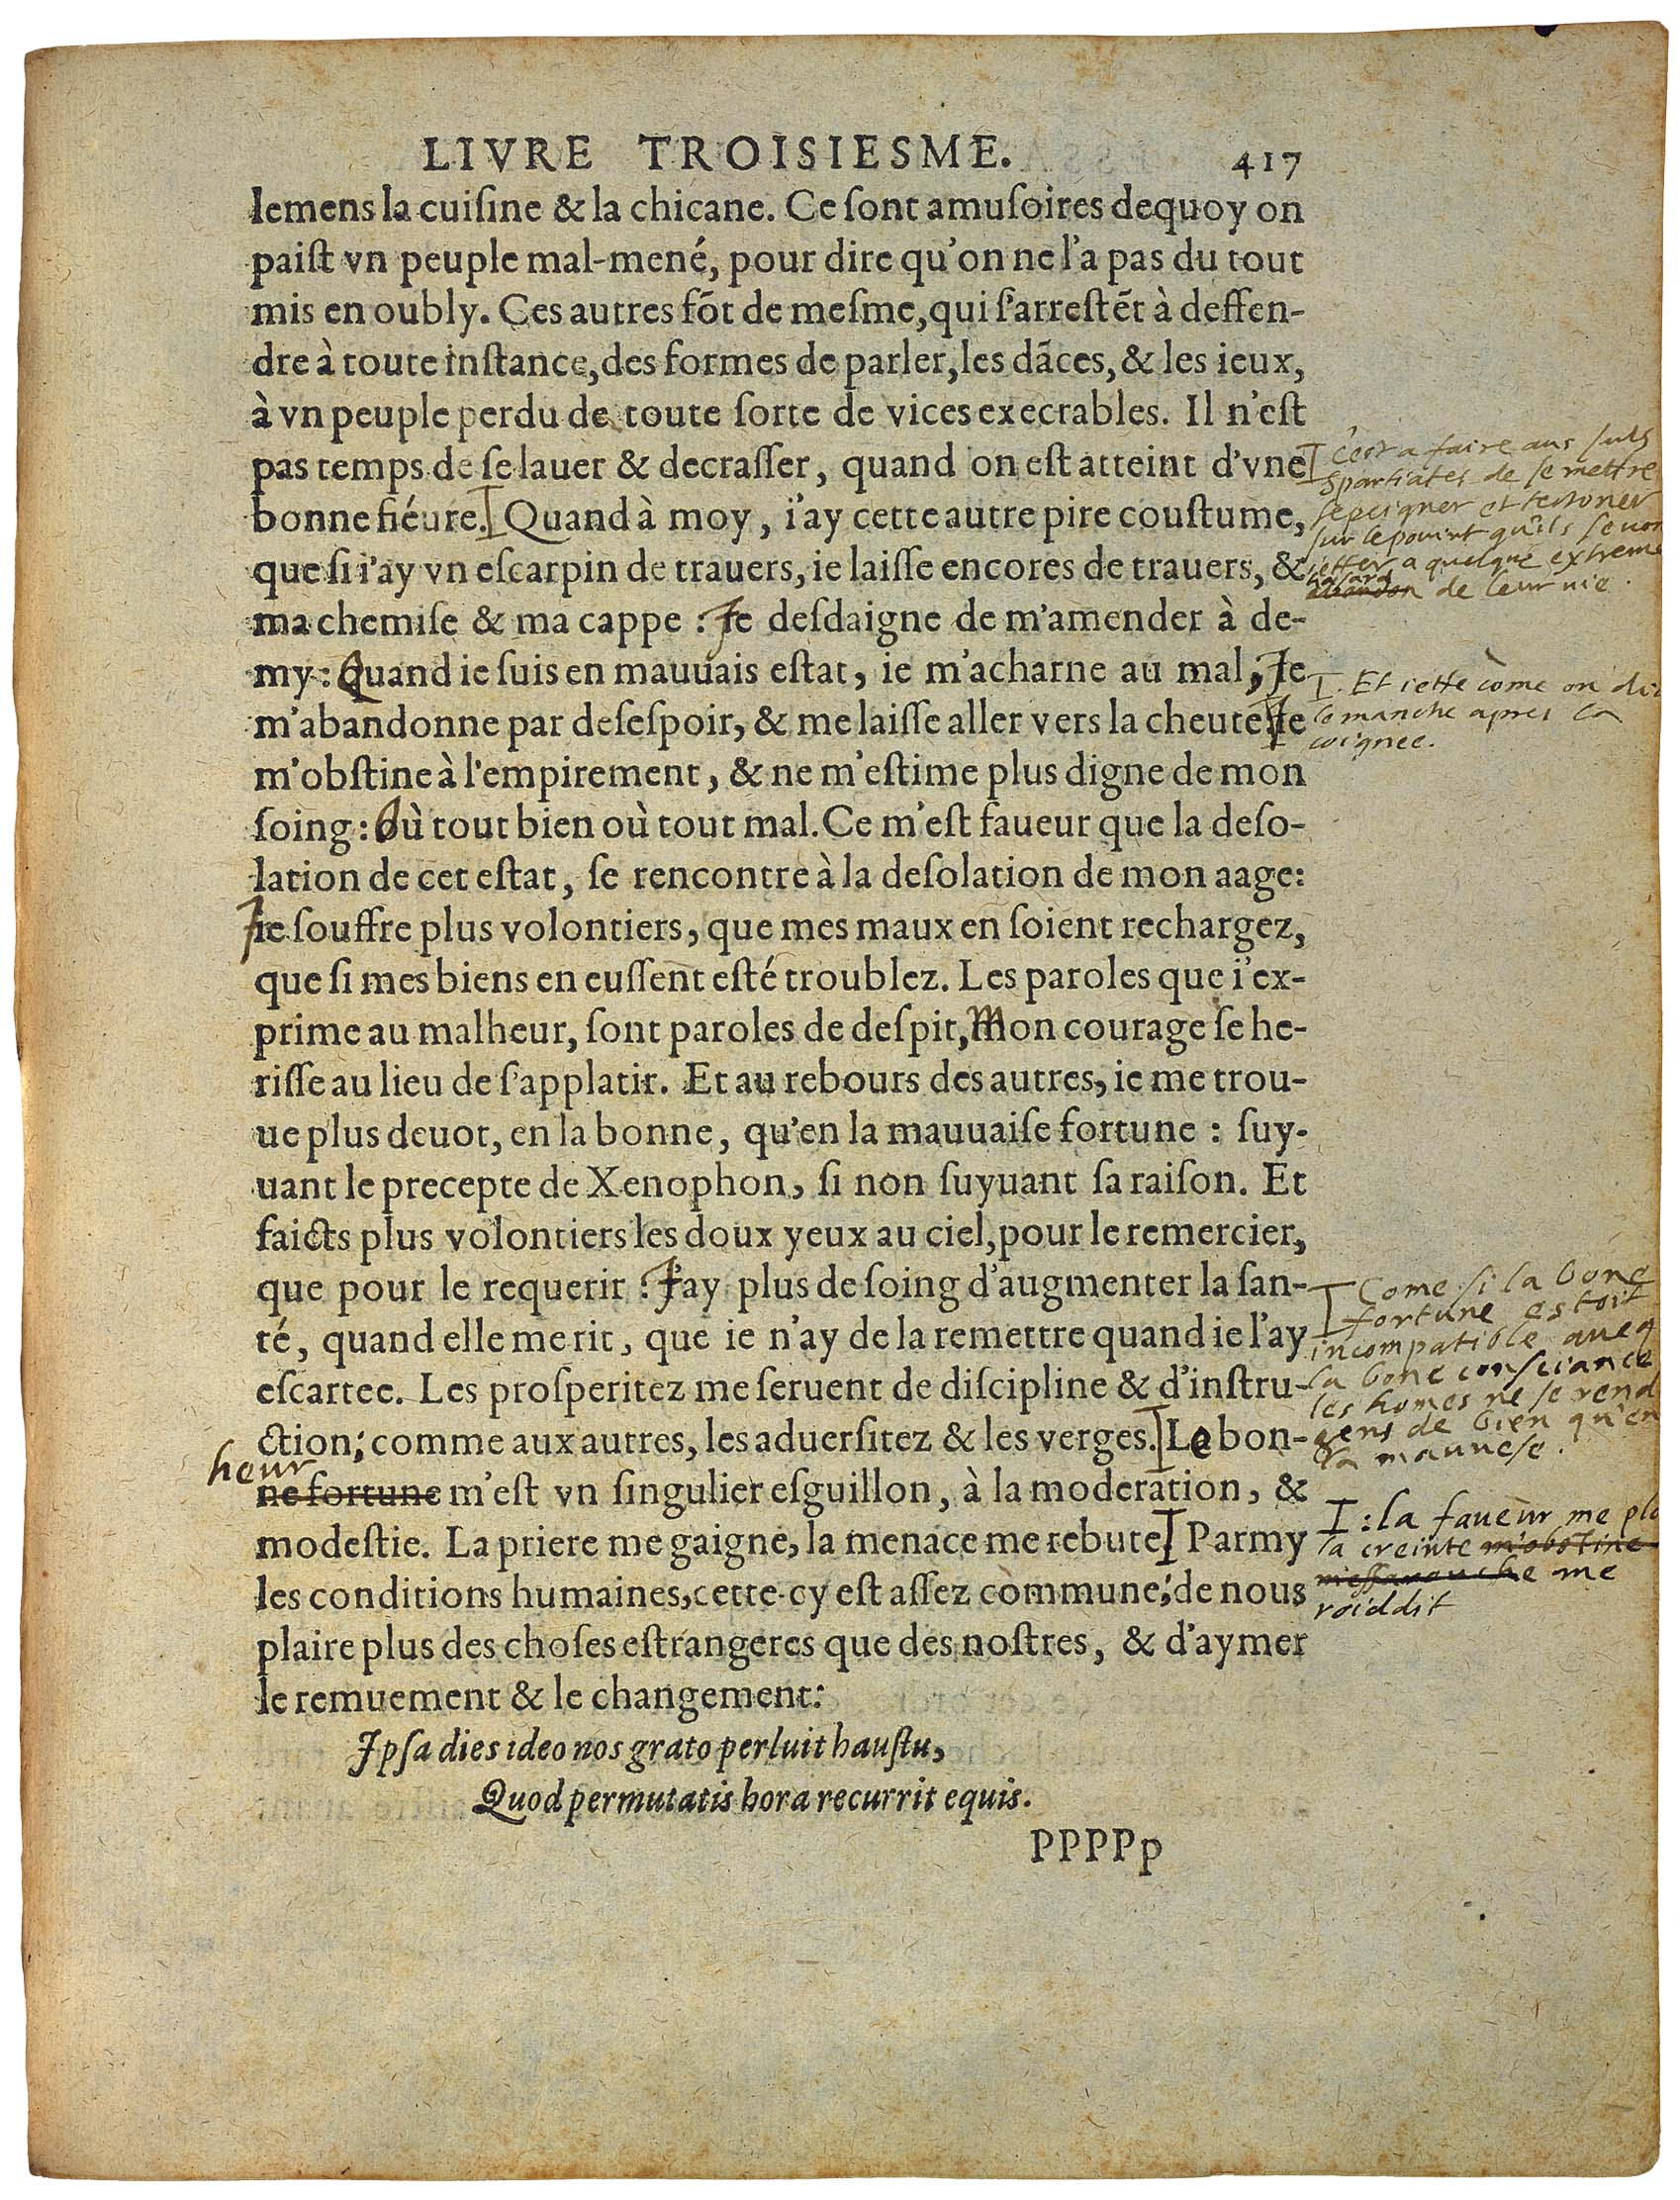 LIVRE TROISIESME. 417
lemens la cuiſine & la chicane. Ce ſont amuſoires dequoy on
paiſt vn peuple mal-mené, pour dire qu'on ne l'a pas du tout
mis en oubly. Ces autres fōt de meſme, qui ſ'arreſtēt à deffen-
dre à toute inſtance, des formes de parler, les dãces, & les ieux,
à vn peuple perdu de toute ſorte de vices execrables. Il n'eſt
pas temps de ſe lauer & decraſſer, quand on eſt atteint d'vne
bonne fiéure. Quand à moy, i'ay cette autre pire couſtume,
que ſi i'ay vn eſcarpin de trauers, ie laiſſe encores de trauers, &
ma chemiſe & ma cappe : Je deſdaigne de m'amender à de-
my: Quand ie ſuis en mauuais eſtat, ie m'acharne au mal, Je
m'abandonne par deſeſpoir, & me laiſſe aller vers la cheute Ie
m'obſtine à l'empirement, & ne m'eſtime plus digne de mon
ſoing: Où tout bien où tout mal. Ce m'eſt faueur que la deſo-
lation de cet eſtat, ſe rencontre à la deſolation de mon aage:
Ie ſouffre plus volontiers, que mes maux en ſoient rechargez,
que ſi mes biens en euſſent eſté troublez. Les paroles que i'ex-
prime au malheur, ſont paroles de deſpit, Mon courage ſe he-
riſſe au lieu de ſ'applatir. Et au rebours des autres, ie me trou-
ue plus deuot, en la bonne, qu'en la mauuaiſe fortune : ſuy-
uant le precepte de Xenophon, ſi non ſuyuant ſa raiſon. Et
faicts plus volontiers les doux yeux au ciel, pour le remercier,
que pour le requerir : J'ay plus de ſoing d'augmenter la ſan-
té, quand elle me rit, que ie n'ay de la remettre quand ie l'ay
eſcartee. Les proſperitez me ſeruent de diſcipline & d'inſtru-
ction; comme aux autres, les aduerſitez & les verges. Le bon-
heur
ne fortune m'eſt vn ſingulier eſguillon, à la moderation, &
modeſtie. La priere me gaigne, la menace me rebute Parmy
les conditions humaines, cette-cy eſt aſſez commune; de nous
plaire plus des choſes eſtrangeres que des noſtres, & d'aymer
le remuement & le changement:
Ipſa dies ideo nos grato perluit hauſtu,
Quod permutatis hora recurrit equis.
PPPPp
C'est a faire aus
Spartiates de se mettre
se peigner et testoner
sur le pouint qu'ils se
a quelque extreme
hasard
abandon de leur uie.
Et iette come on
le manche apres la
coignee.
Come si la bone
fortune estoit
incompatible aueq
la bone consciance
les homes ne se rend
gens de bien qu'en
la mauuese.
: la faveur me
la creinte m'obstine
m'effarouche me
roiddit